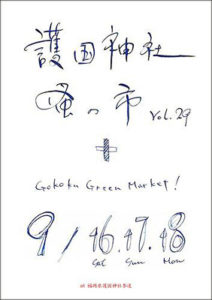 護国神社
蚤の市 vol.29
+
Gokoku Green Market!
9/16.17.18
Sat Sun Mon
at 福岡県護国神社参道